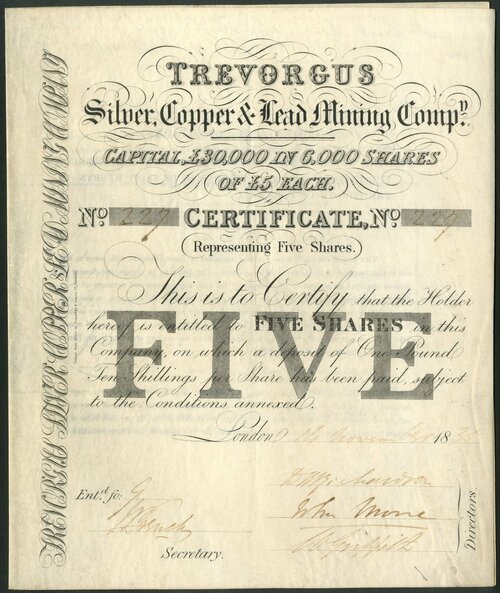 TREVORGUS
Silver, Copper & Lead Mining Compy.
CAPITAL, £30,000 IN 6,000 SHARES
OF £5 EACH.
No. 227 CERTIFICATE, No. 227
Representing Five Shares.
This is to Certify that the Holder
hereof is entitled to FIVE SHARES in this
Company, on which a deposit of One Pound
Ten Shillings per Share has been paid, subject
to the Conditions annexed.
FIVE
London 14 November 183
Entd. fo:
French
Secretary.
Richardson
John Moore
Griffith
Directors
TREVORGUS SILVER COPPER & LEAD MINING COMPANY